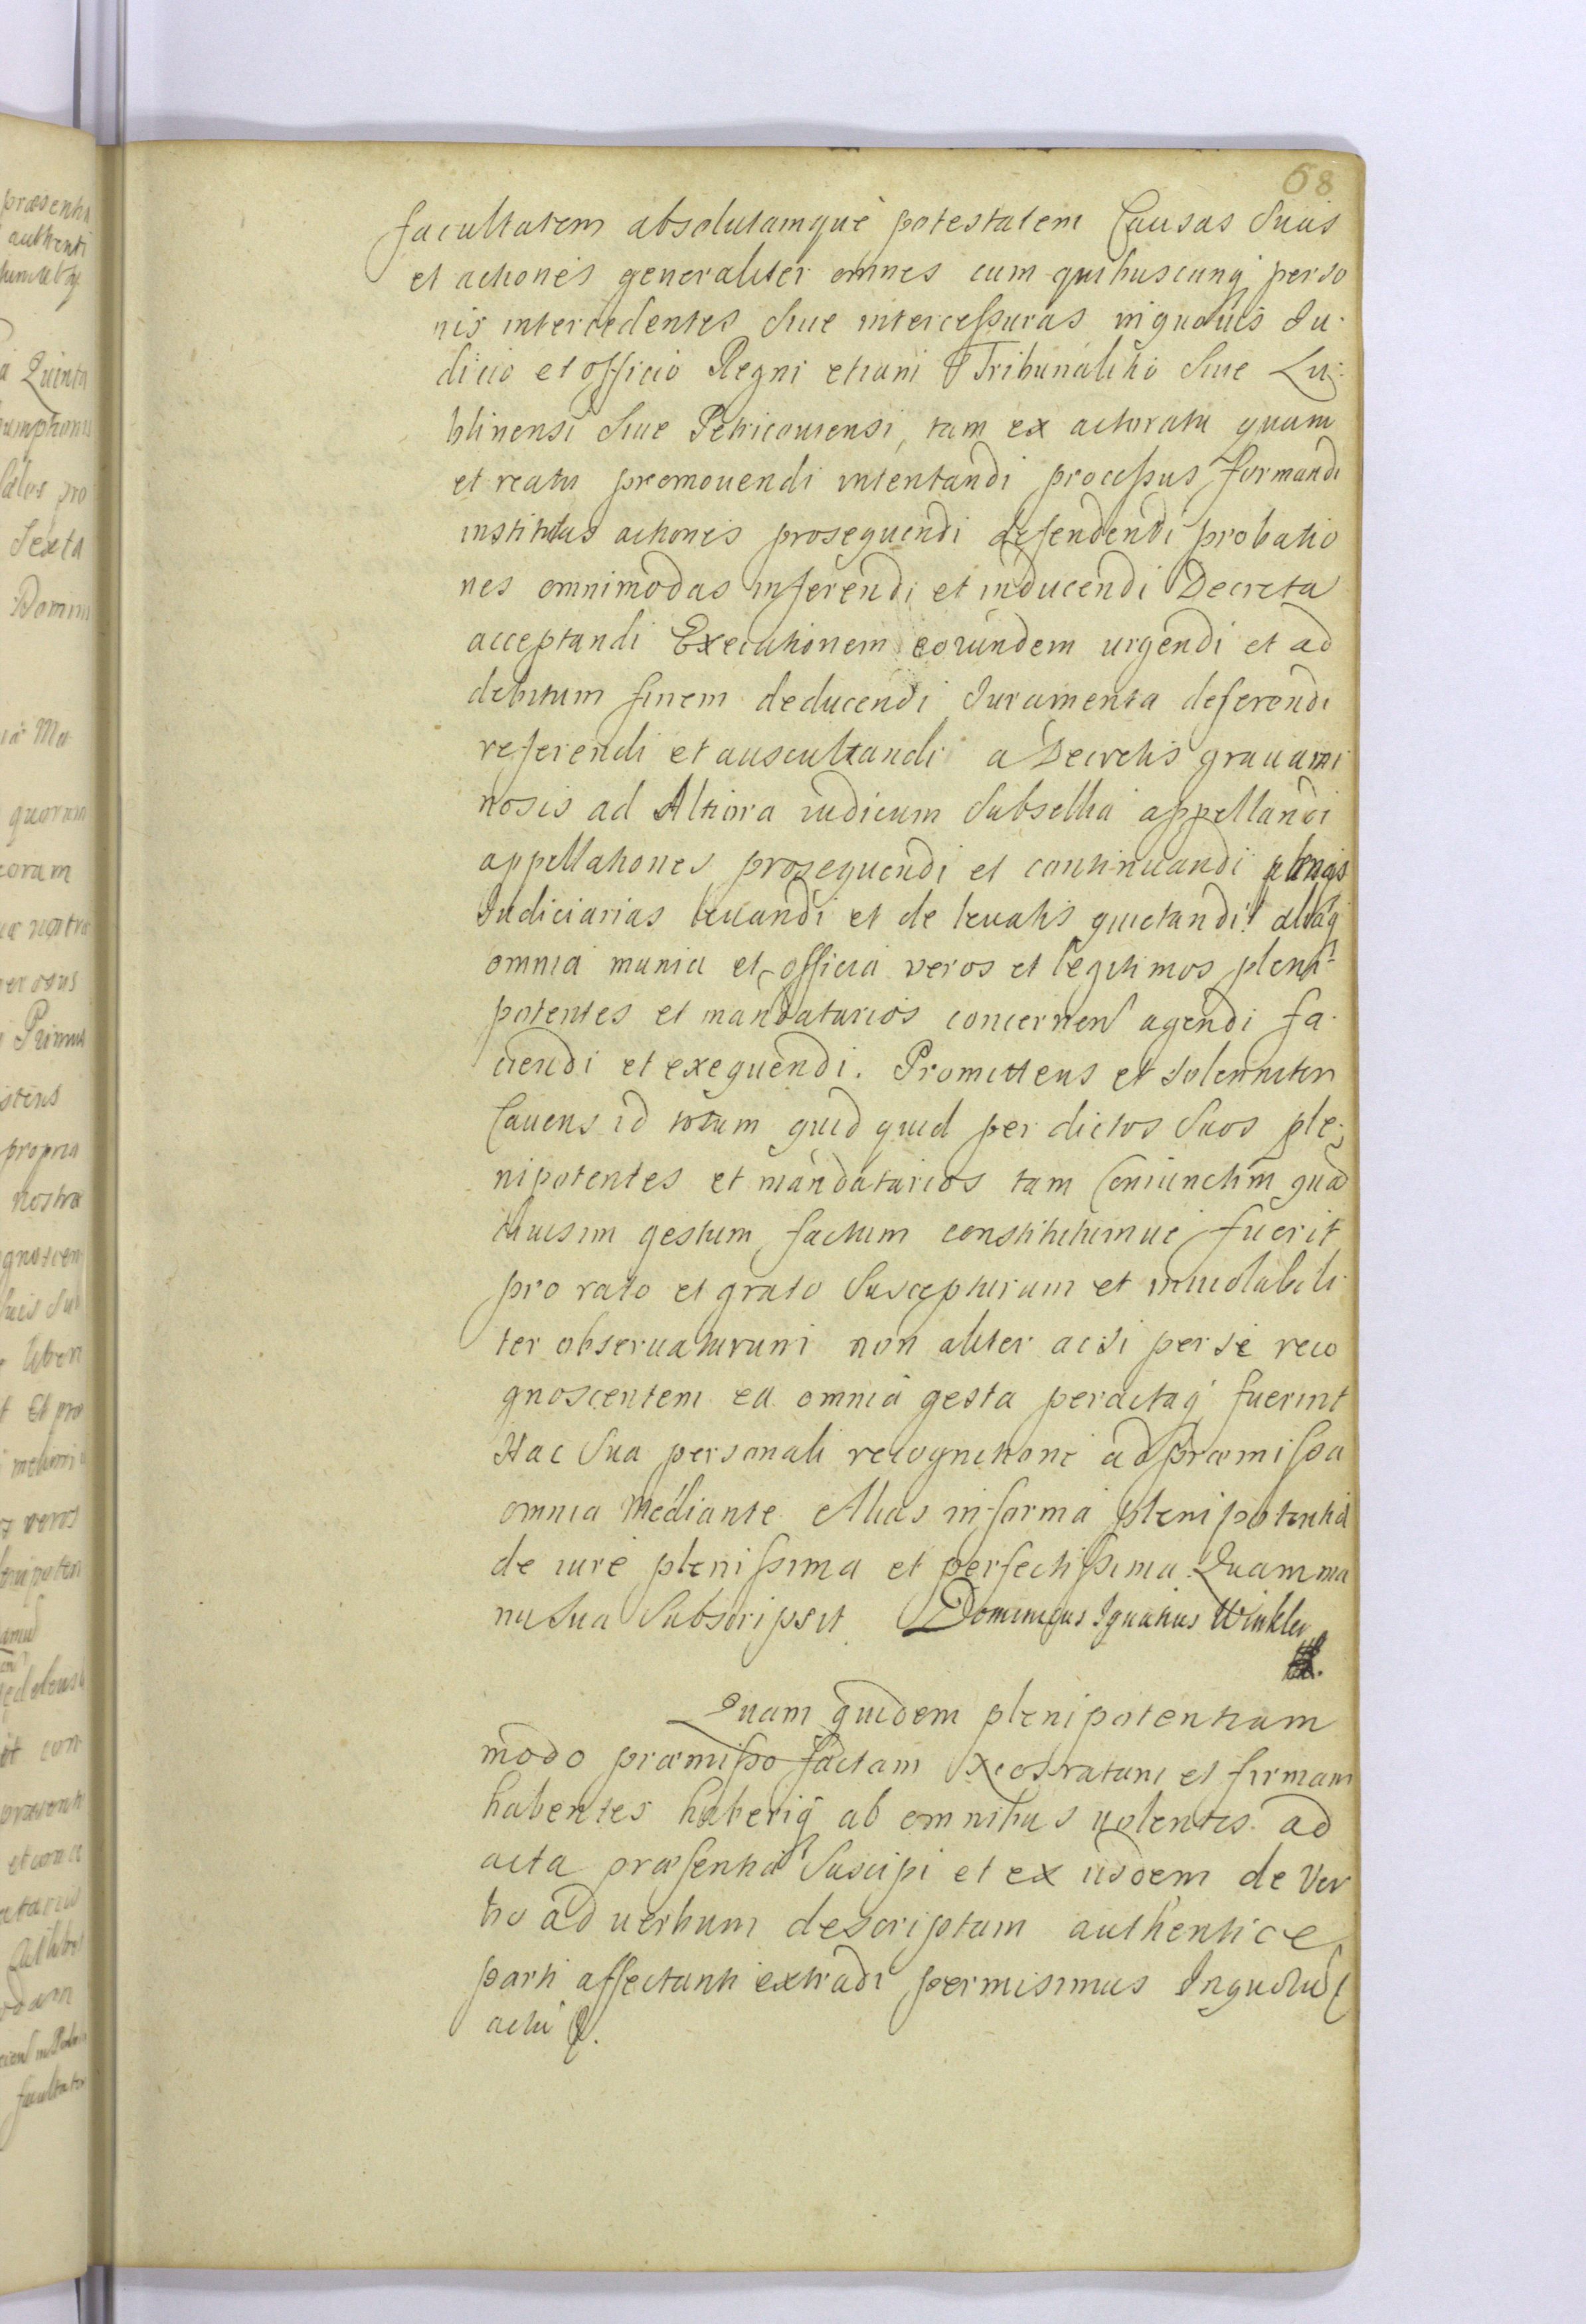 68
facultatem absolutamque potestatem Causas Suas
et actiones generaliter omnes cum quibuscunq perso
nis intercedentes Siue intercessuras in quouis Iu-
dicio et officio Regni etiam Tribunalitio Siue Lu-
blinensi Siue Petricouiensi, tam ex actoratu quam
et reatu promouendi intentandi processus formandi
institutas actiones prosequendi defendendi probatio
nes omnimodas inferendi et inducendi Decreta
acceptandi Executionem eorundem urgendi et ad
debitum finem deducendi Iuramenta deferendi
referendi et auscultandi a Decretis grauami
nosis ad Altiora iudicum Subsellia appellandi
appellationes prosequendi et continuandi
Iudiciarias leuandi et de leuatis quietandi aliaq
omnia munia et officia veros et legitimos pleni-
potentes et mandatarios concernen agendi fa-
ciendi et exequendi. Promittens et solenniter
Cauens id totum quid quid per dictos Suos ple-
nipotentes et mandatarios tam Coniunctim qua
diuisim gestum factum constitutumue fuerit
pro rato et grato Suscepturum et inuiolabili
ter obseruaturum non aliter acsi per se reco
gnoscentem ea omnia gesta peractaq fuerint
Hac Sua personali recognitione ad præmissa
omnia Mediante Alias in forma plenipotentia
de iure plenissima et perfectissima. Quam ma
nu Sua Subscripsit Dominicus Ignatius Winkler
Quam quidem plenipotentiam
modo præmisso factam ratam et firmam
habentes haberiq ab omnibus uolentes ad
acta præsentia Suscipi et ex iisdem de Ver
bo ad uerbum descriptam authentice
parti affectanti extradi permisimus Inquoru
actu